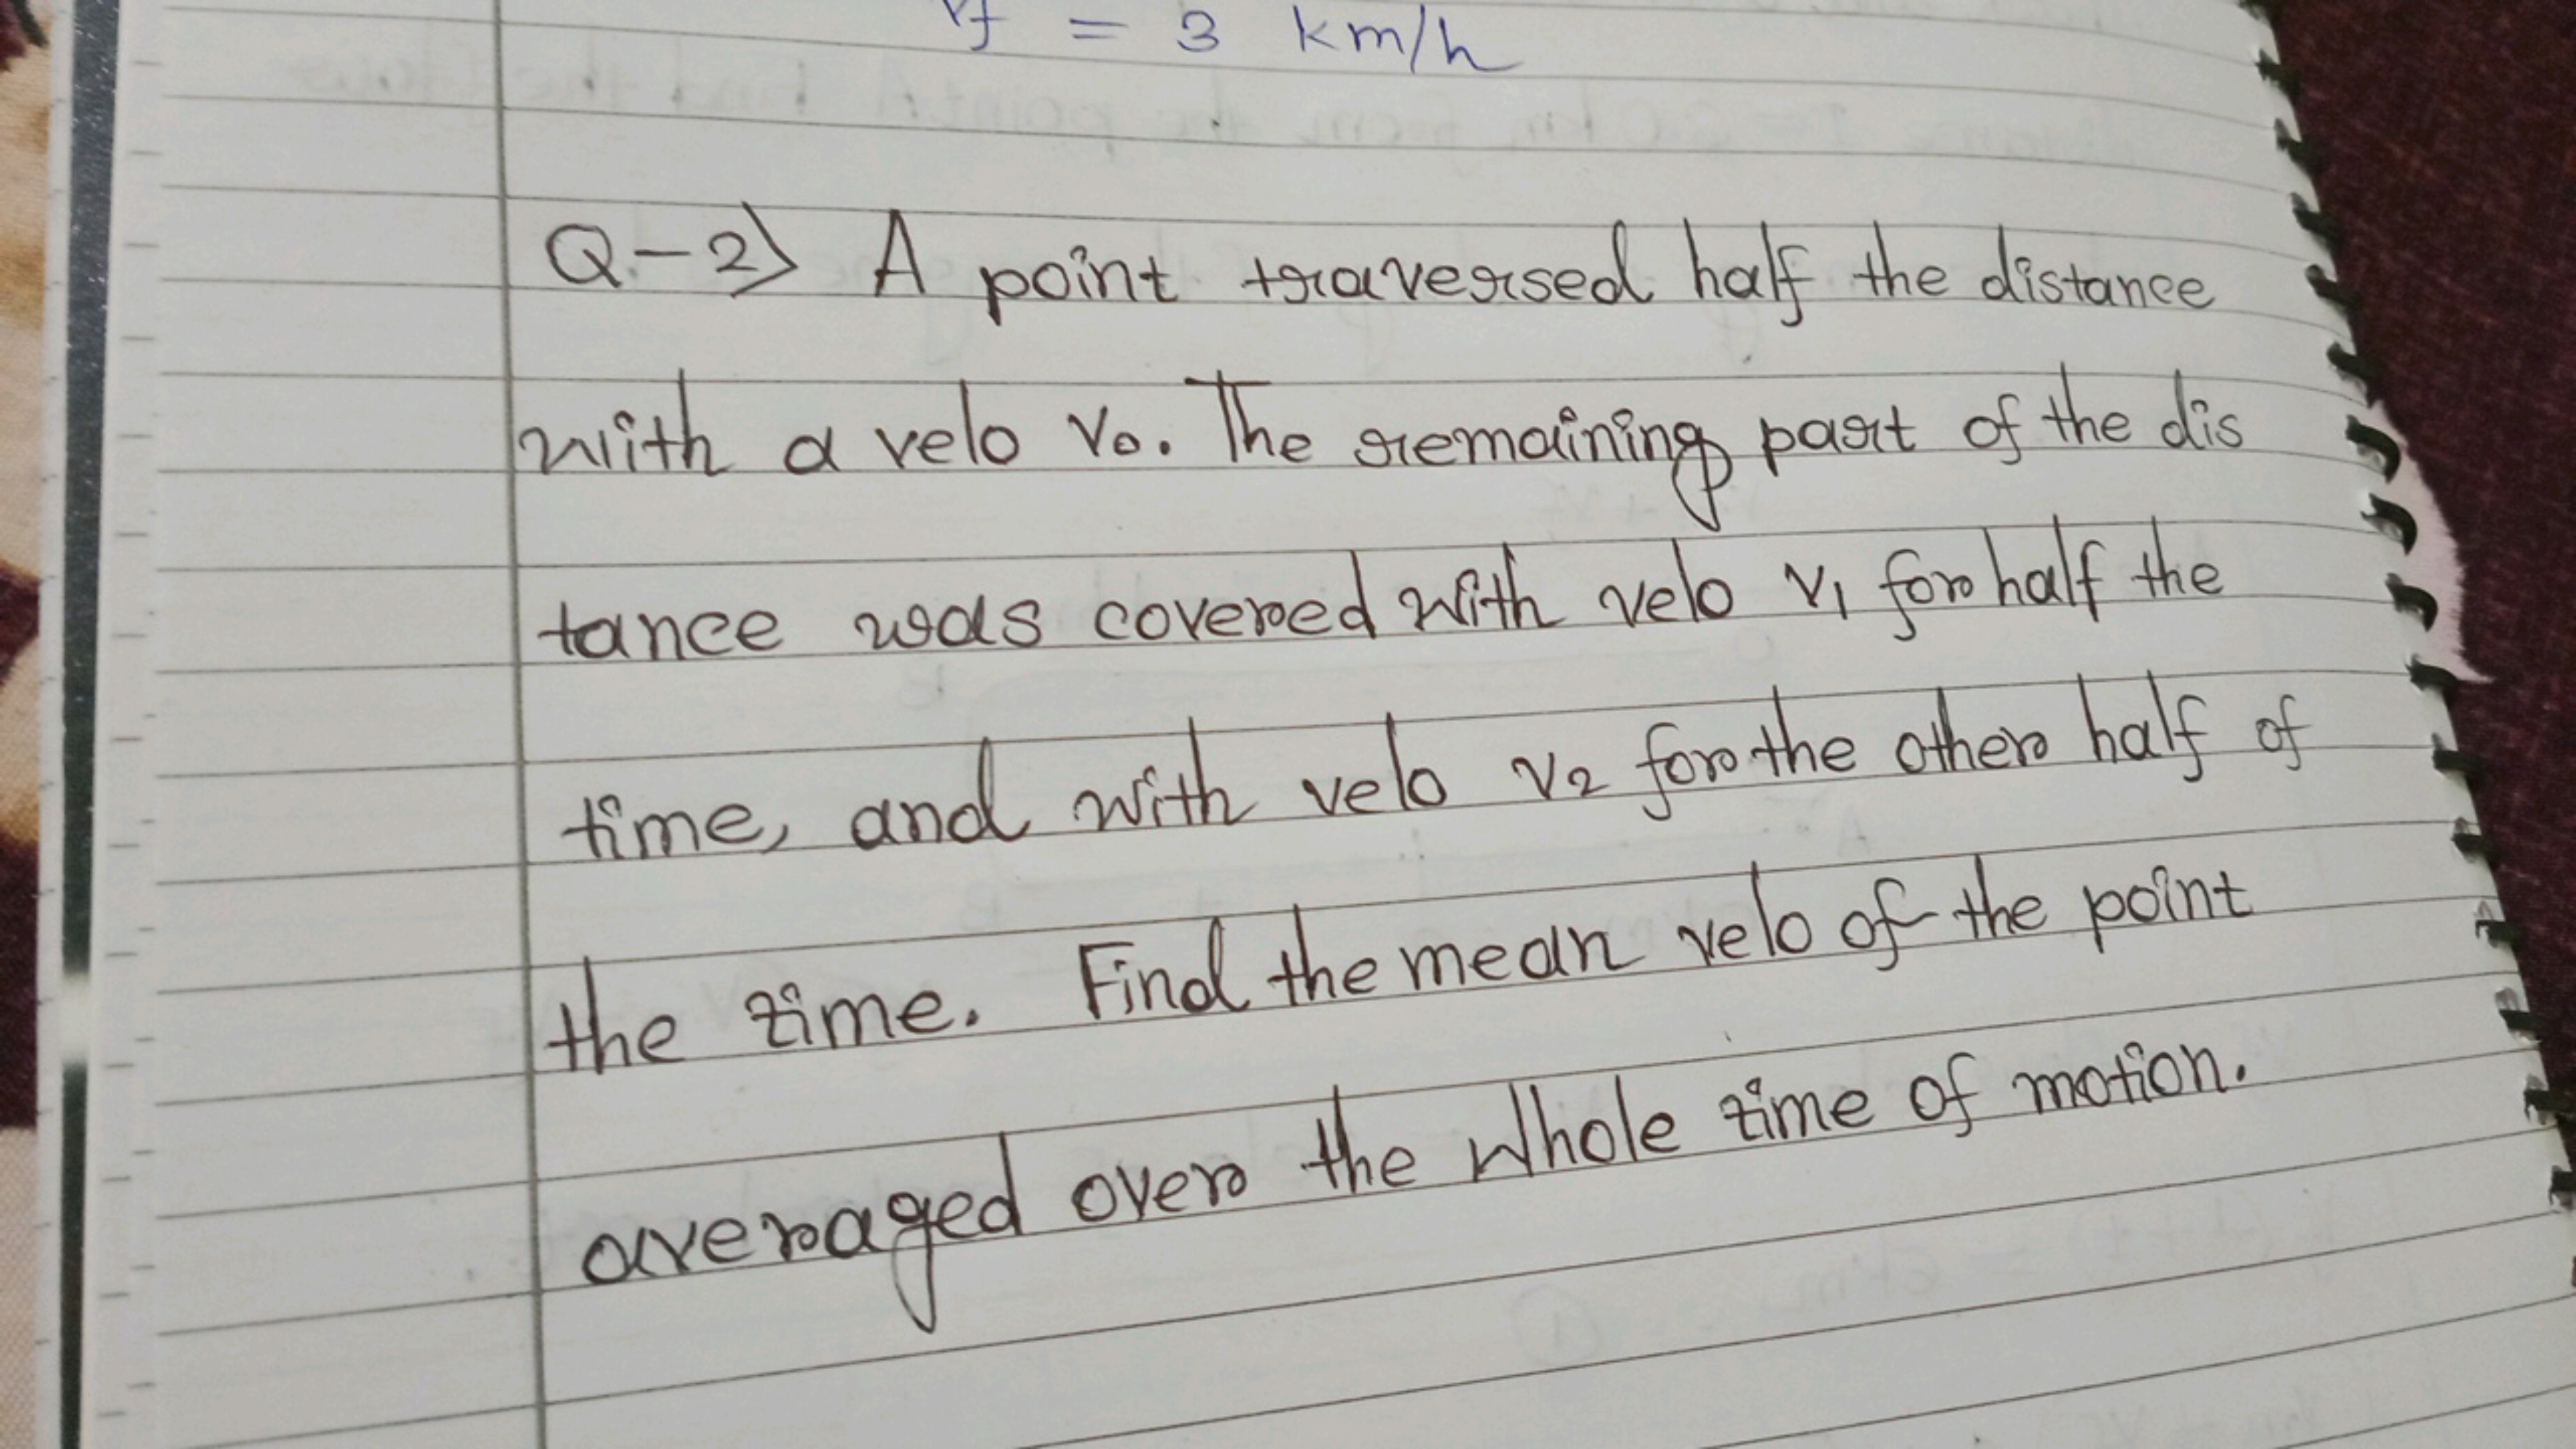 vf = 3 km/h
Q-2) A point traversed half the distance
with a velo v₀. The remaining part of the dis
tance was covered with velo v₁ for half the
time, and with velo v₂ for the other half of
the time. Find the mean velo of the point
averaged over the whole time of motion.